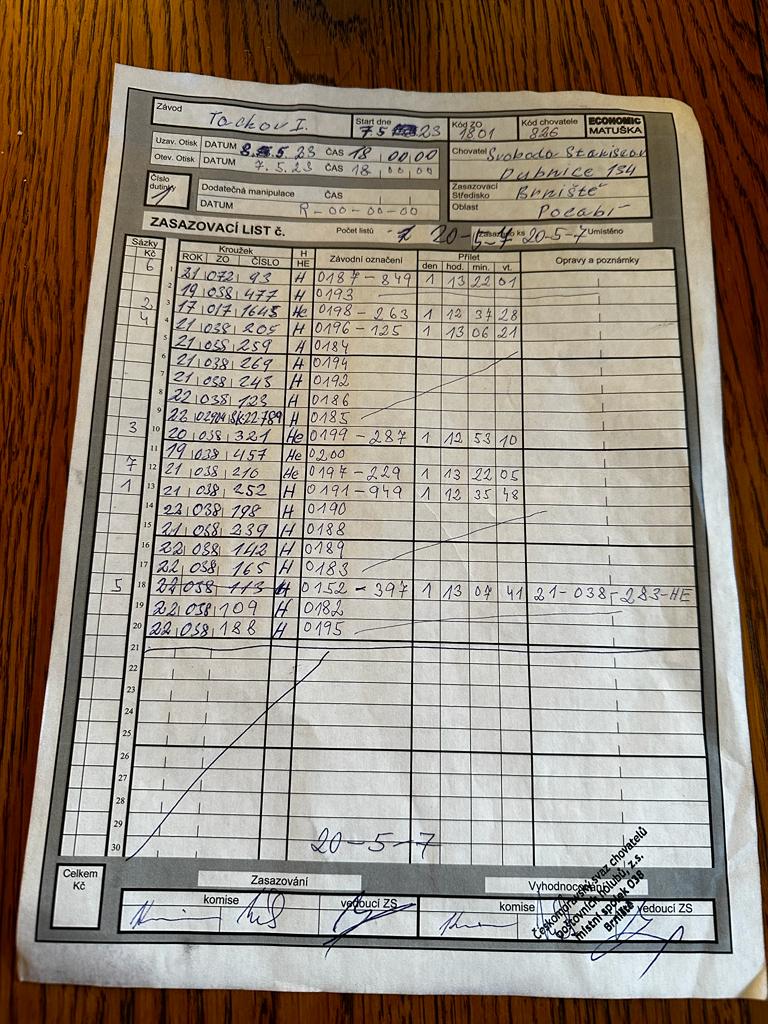 Závod Tachov I. Start dne 7 5 23 Kód ZO 1801 Kód chovatele 826 ECONOMIC MATUŠKA
Uzav. Otisk DATUM 8.5. 23 ČAS 18 00 00 Chovatel Svoboda Stanislav
Otev. Otisk DATUM 7. 5. 23 ČAS 18 00 00 Dubnice 134
Číslo dutinky 1 Dodatečná manipulace ČAS Zasazovací Středisko Brniště
DATUM R-00-00-00 Oblast Pocabí
ZASAZOVACÍ LIST č. Počet listů 20-5-7 Umístěno
Sázky Kč Kroužek ROK ZO ČÍSLO H HE Závodní označení Přílet den hod. min. vt. Opravy a poznámky
6 1 21 072 93 H 0187-849 1 13 22 01
2 19 038 477 H 0193
2 3 17 017 1645 He 0198-263 1 12 37 28
4 4 21 038 205 H 0196-125 1 13 06 21
5 21 038 259 H 0184
6 21 038 269 H 0194
7 21 038 245 H 0192
8 22 038 123 H 0186
9 22 SK22789 H 0185
3 10 20 038 321 He 0199-287 1 12 53 10
11 19 038 457 He 0200
7 12 21 038 210 He 0197-229 1 13 22 05
1 13 21 038 252 H 0191-949 1 12 35 48
14 22 038 198 H 0190
15 21 038 239 H 0188
16 22 038 142 H 0189
17 22 038 165 H 0183
5 18 22 038 113 H 0152-397 1 13 07 41 21-038-283-HE
19 22 038 109 H 0182
20 22 038 188 H 0195
21
22
23
24
25
26
27
28
29
30 20-5-7
Celkem Kč Zasazování Vyhodnocování
komise vedoucí ZS komise vedoucí ZS
Českomoravský svaz chovatelů
poštovních holubů, z.s.
místní spolek 038
Brniště